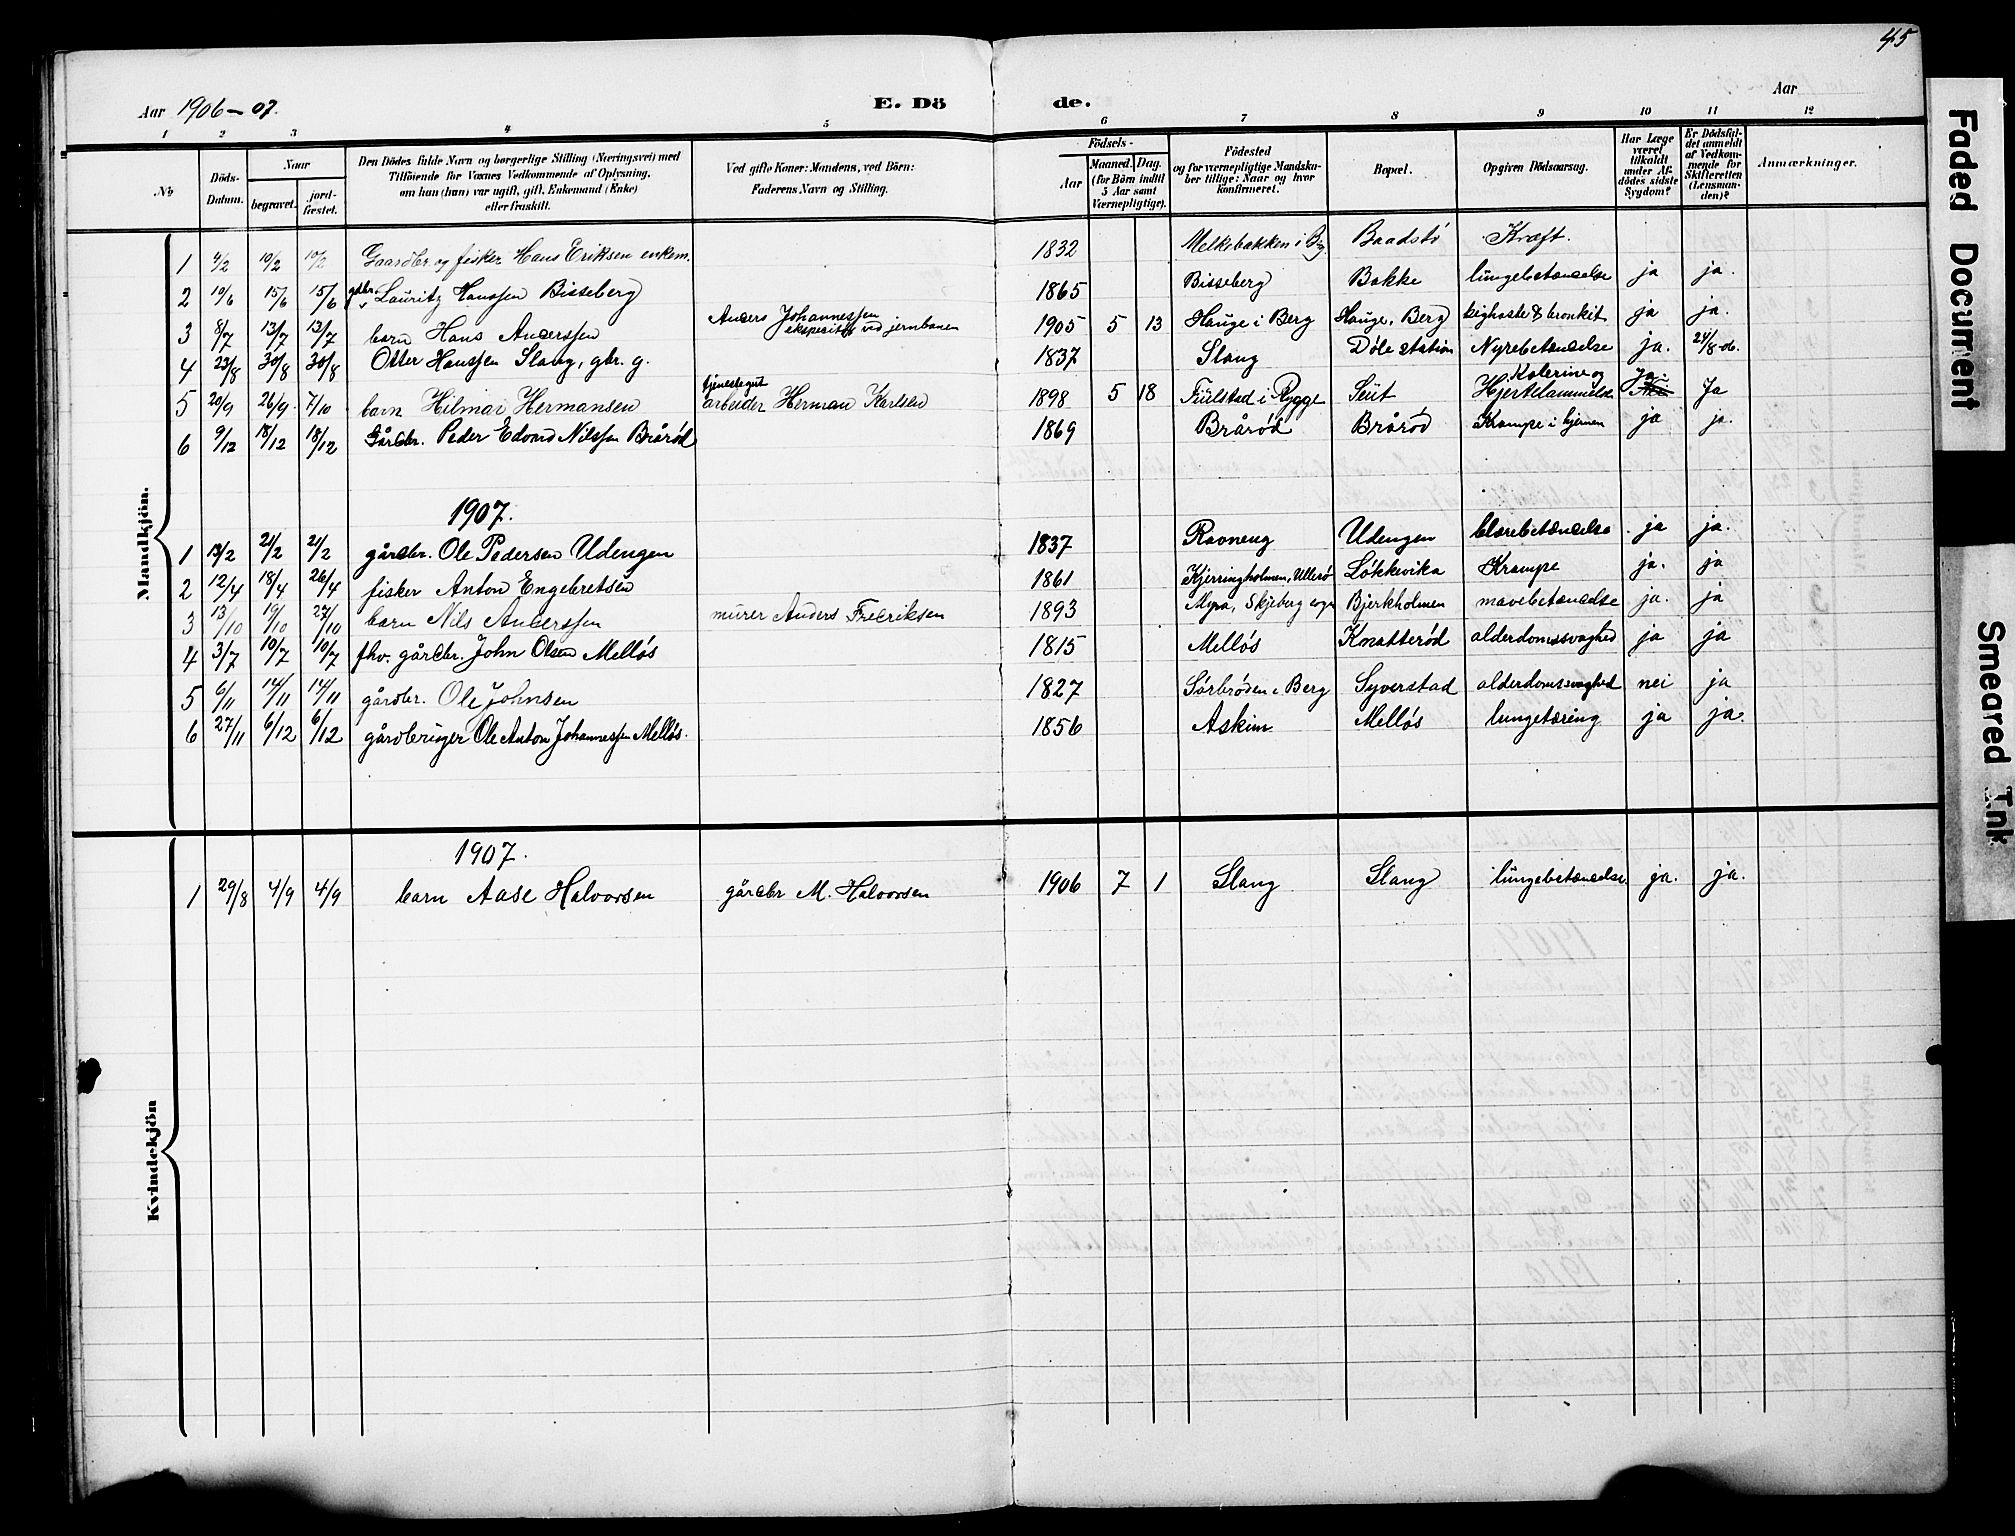 45
Aar 1906-07.
E. Döde.
Aar
1 2 3 4 5 6 7 8 9 10 11 12
No
Döds-Datum.
Naar
begravet.
jordfæstet.
Den Dödes fulde Navn og borgerlige Stilling (Næringsvei) med
Tilföiende for Voxnes Vedkommende af Oplysning,
om han (hun) var ugift, gift, Enkemand (Enke)
eller fraskilt.
Ved gifte Koner: Mandens, ved Börn:
Faderens Navn og Stilling.
Födsels-
Aar
Maaned. Dag.
(for Börn indtil
5 Aar samt
Værnepligtige).
Födested
og for værnepligtige Mandska-
ber tillige: Naar og hvor
konfirmeret.
Bopæl.
Opgiven Dödsaarsag.
Har Læge
været
tilkaldt
under Af-
dödes sidste
Sygdom?
Er Dödsfal-
det anmeldt
af Vedkom-
mende for
Skifteretten
(Lensman-
den)?
Anmærkninger.
Mandkjön.
1 4/2 10/2 10/2 Gaardbr og fisker Hans Eriksen enkem. 1832 Melkebakken i Bg Baadstö Kræft.
2 10/6 15/6 15/6 gdbr. Lauritz Hanssen Bisseberg 1865 Bisseberg Bakke lungebetændelse ja ja.
3 8/7 13/7 13/7 barn Hans Anderssen Anders Johannessen ekspeditør ved jernbanen 1905 5 13 Hauge i Berg Hauge, Berg kighoste & bronkit ja ja.
4 23/8 30/8 30/8 Otter Hanssen Slang, gbr. g. 1837 Slang Døle station Nyrebetændelse ja. 24/8 do.
5 20/9 26/9 7/10 barn Hilmar Hermansen tjenestegut arbeider Herman Karlsen 1898 5 18 i Rygge Seut Kolerine og Hjertelammelse Ja. Ja
6 9/12 18/12 18/12 Gårdbr. Peder Edvard Nilssen Brårød 1869 Brårød Brårød Krampe i hjernen ja ja.
1907.
1 13/2 21/2 21/2 gårdbr. Ole Pedersen Udengen 1837 Ravneng Udengen blærebetændelse ja ja.
2 12/4 18/4 26/4 fisker Anton Engebretsen 1861 Kjerringholmen, Ullerø Løkkevika Krampe ja. ja
3 13/10 19/10 27/10 barn Nils Anderssen murer Anders Fredriksen 1893 Myra, Skjeberg sogn Bjerkholmen mavebetændelse ja. ja
4 3/7 10/7 10/7 fhv. gårdbr. John Olsen Melløs 1815 Melløs Knatterød alderdomssvaghed ja ja
5 6/11 14/11 14/11 gårdbr. Ole Johnsen 1827 Sørbrøden i Berg Syverstad alderdomssvaghed nei ja
6 27/11 6/12 6/12 gårdbruger Ole Anton Johannessen Melløs. 1856 Askim Melløs lungetæring ja ja
Kvindekjön
1907.
1 29/8 4/9 4/9 barn Aase Halvorsen gårdbr M. Halvorsen 1906 7 1 Slang Slang lungebetændelse ja. ja.
Faded Document
Smeared Ink